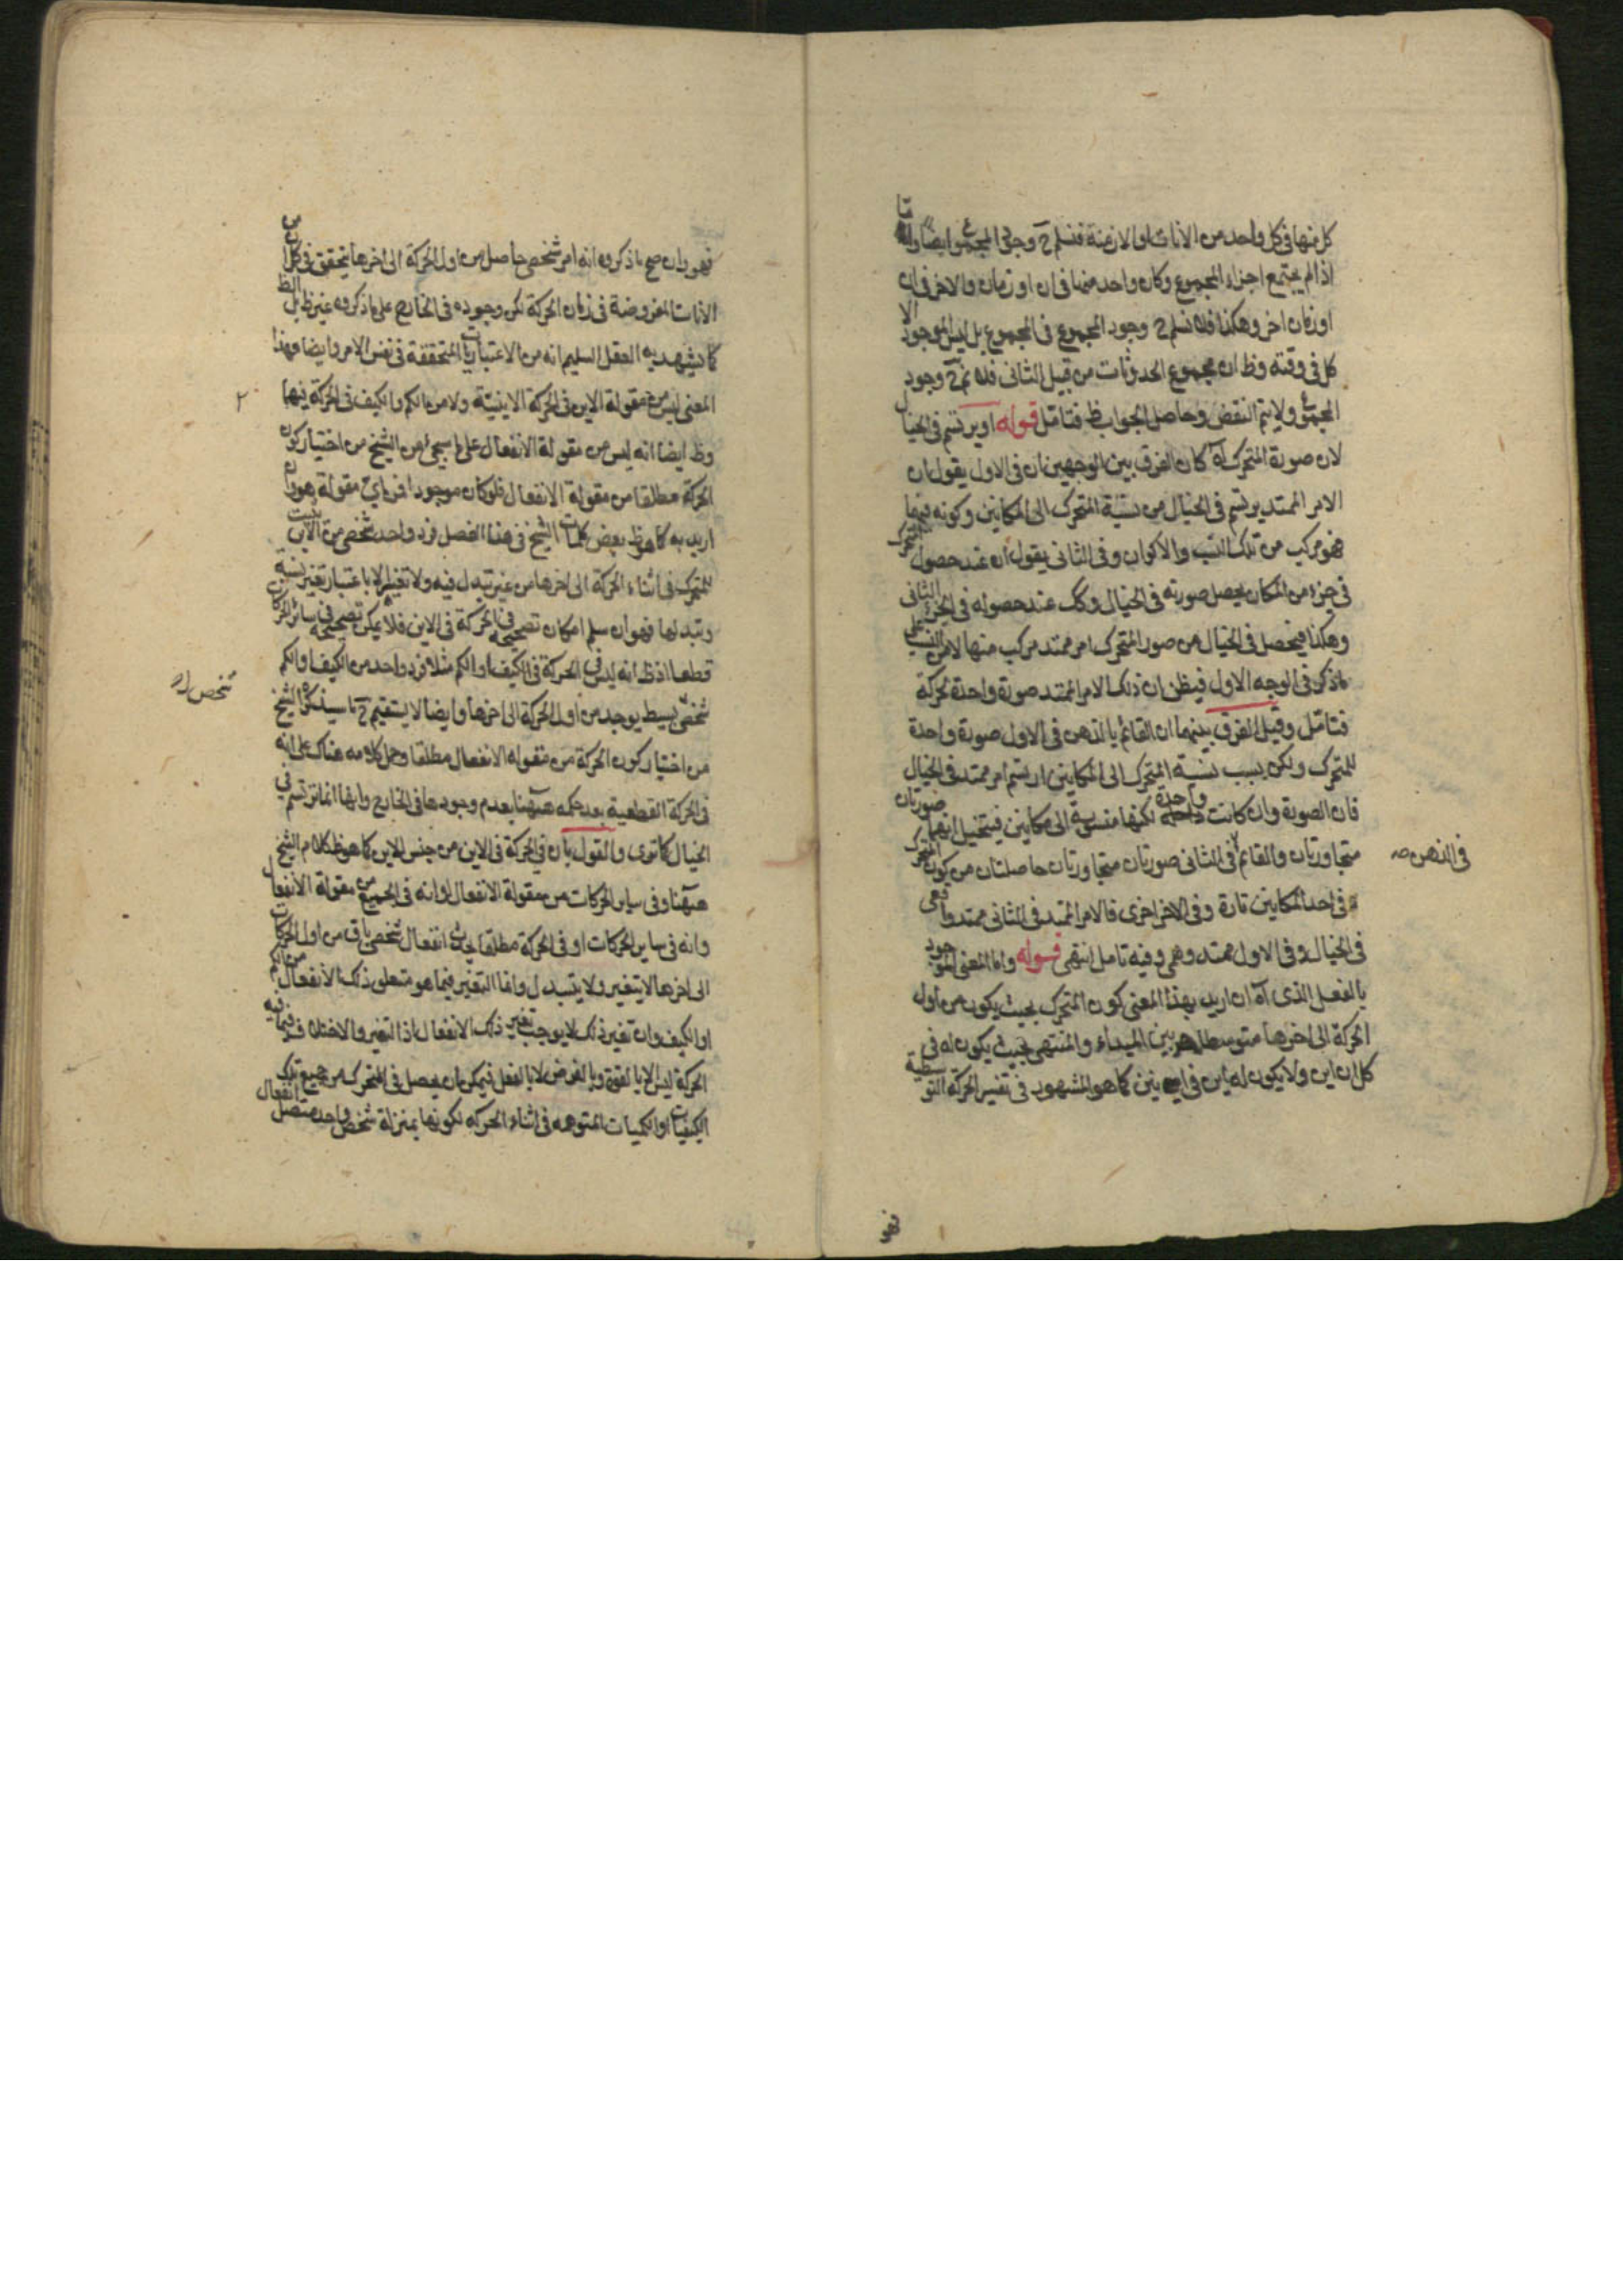 كل منها فى كل واحد من الانات او الازمنة فنسلم ح وجود المجموع ايضا واما
اذا لم يجتمع اجزاء المجموع وكان واحد منها فى ان او زمان والاخر فى ان
او زمان اخر وهكذا فلا نسلم ح وجود المجموع فى المجموع بل ليس الموجود الا
كل فى وقته وظ ان مجموع الحدوثات من قبيل الثانى فلا نم ح وجود
المجموع ولا يتم النقض وحاصل الجواب ظ فتامل قوله او يرتسم فى الخيال
لان صورة المتحرك آه كان الفرق بين الوجهين ان فى الاول يقول ان
الامر الممتد يرتسم فى الخيال من نسبة المتحرك الى المكانين وكونه فيهما
فهو مركب من تلك النسب والاكوان وفى الثانى يقول ان عند حصول المتحرك
فى جزء من المكان يحصل صورته فى الخيال وكك عند حصوله فى الجزء الثانى
وهكذا فيحصل فى الخيال من صور المتحرك امر ممتد مركب منها لا من النسب على
ما ذكر فى الوجه الاول فيظن ان ذلك الامر الممتد صورة واحدة لحركة
فتامل وقيل الفرق بينهما ان القائم بالذهن فى الاول صورة واحدة
للمتحرك ولكن بسبب نسبة المتحرك الى المكانين ارتسم امر ممتد فى الخيال
فان الصورة وان كانت واحدة لكنها منسوبة الى مكانين فيتخيل انها صورتان
متجاورتان والقائم فى الثانى صورتان متجاورتان حاصلتان من كون المتحرك
فى الذهن صه
فى احد المكانين تارة وفى الاخر اخرى فالامر الممتد فى الثانى ممتد واقعى
فى الخيال وفى الاول ممتد وهمى وفيه تامل انتهى قوله واما المعنى الموجود
بالفعل الذى آه ان اريد بهذا المعنى كون المتحرك بحيث يكون من اول
الحركة الى اخرها متوسطا بين المبداء والمنتهى بحيث يكون له فى
كل ان اين ولا يكون له اين فى انين كما هو المشهور فى تفسير الحركة التوسطية
فهو
فهو وان صح ما ذكروه انه امر شخصى حاصل من اول الحركة الى اخرها يتحقق فى كل ان من
الانات المفروضة فى زمان الحركة لكن وجوده فى الخارج على ما ذكروه غير ظ بل الظ
كما يشهد به العقل السليم انه من الاعتباريات المتحققة فى نفس الامر وايضا فهذا
المعنى ليس من مقولة الاين فى الحركة الاينية ولا من الكم والكيف فى الحركة فيها
٢
وظ ايضا انه ليس من مقولة الانفعال على ما سيجئ من الشيخ من اختيار كون
الحركة مطلقا من مقولة الانفعال فلو كان موجودا فمن اى مقولة هو وان
اريد به كما هو ظ بعض كلمات الشيخ فى هذا الفصل فرد واحد شخصى من الاين يثبت
للمتحرك فى اثناء الحركة الى اخرها من غير تبدل فيه ولا تغير الا باعتبار تغير نسبته
وتبدلها فهو ان سلم امكان تصحيحه فى الحركة فى الاين فلا يمكن تصحيحه فى سائر الحركات
قطعا اذ ظ انه ليس فى الحركة فى الكيف او الكم مثلا فرد واحد من الكيف والكم
شخص اد
شخصى بسيط يوجد من اول الحركة الى اخرها وايضا لا يستقيم ح ما سيذكره الشيخ
من اختيار كون الحركة من مقوله الانفعال مطلقا وحمل كلامه هناك على انه
فى الحركة القطعية بعد حكمه ههنا بعدم وجودها فى الخارج وانها انما ترتسم فى
الخيال كما ترى والقول بان فى الحركة فى الاين من جنس الاين كما هو ظ كلام الشيخ
ههنا وفى ساير الحركات من مقولة الانفعال او انه فى الجميع من مقولة الانفعال
وانه فى ساير الحركات او فى الحركة مطلقا يحدث انفعال شخصى باق من اول الحركات
الى اخرها لا يتغير ولا يتبدل وانما التغير فيما هو متعلق ذلك الانفعال من الكم
او الكيف وان تغير ذلك لا يوجب تغير ذلك الانفعال اذ التغير والاختلاف فيما فيه
الحركة ليس الا بالقوة وبالفرض لا بالفعل فيمكن ان يحصل فى المتحرك من جميع تلك انفعال
الكيفيات او الكميات المتوهمه فى اثناء الحركه لكونها بمنزلة شخص واحد متصل